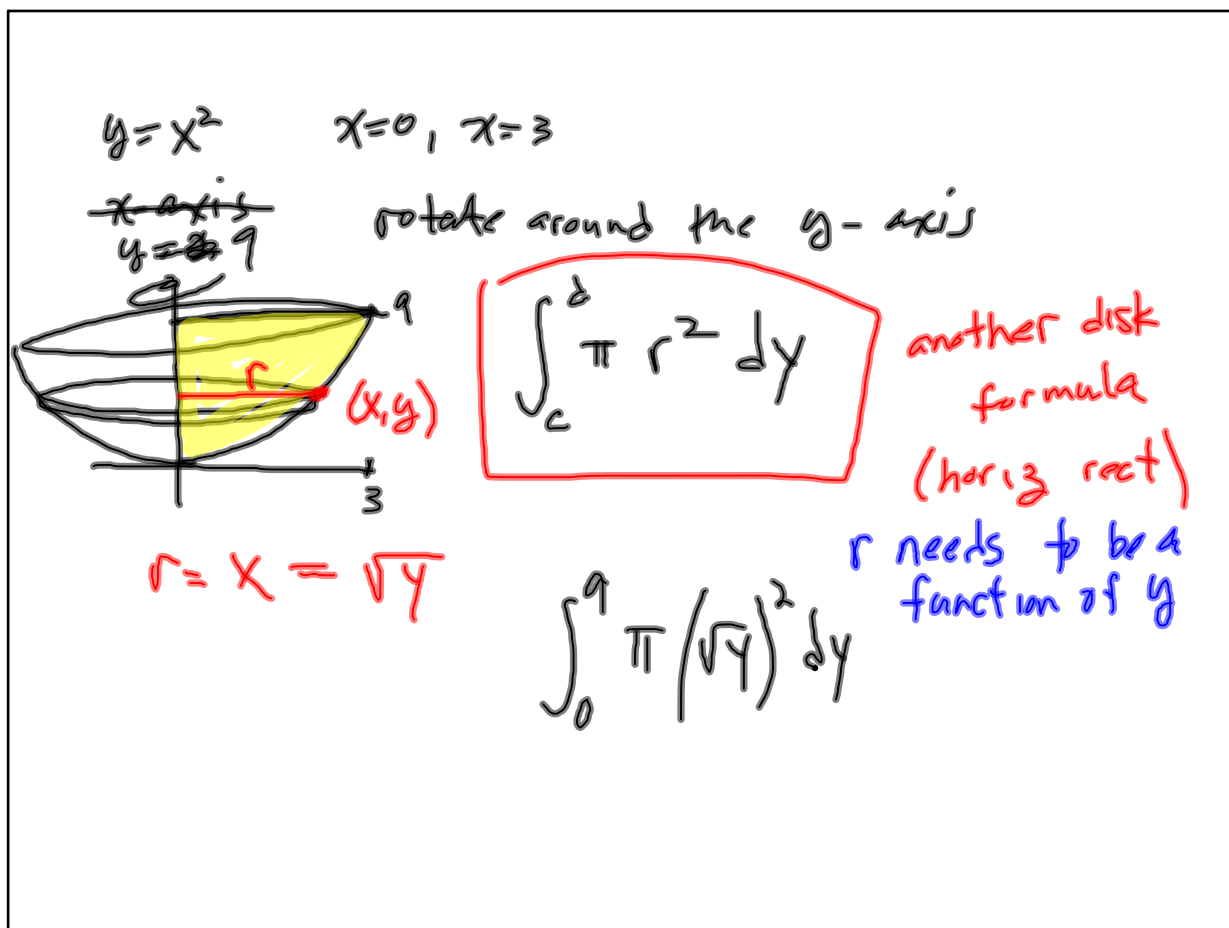 y = x² x=0, x=3
x-axis rotate around the y-axis
y = 9
9
∫_c^d π r² dy
another disk
formula
(horiz rect)
r
(x,y)
3
r needs to be a
function of y
r = x = √y
∫_0^9 π (√y)² dy